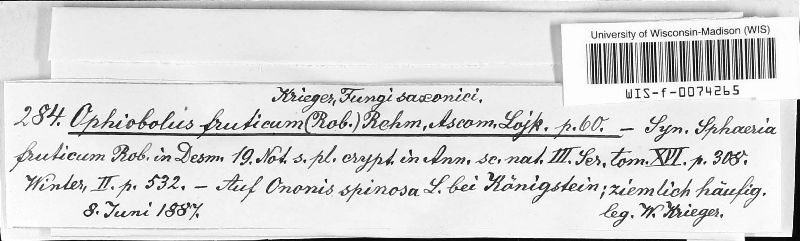 University of Wisconsin-Madison (WIS)
WIS-f-0074265
Krieger, Fungi saxonici.
284. Ophiobolus fruticum (Rob.) Rehm, Ascom. Lojk. p. 60. – Syn. Sphaeria
fruticum Rob. in Desm. 19. Not. s. pl. crypt. in Ann. sc. nat. III. Ser. tom. XVI. p. 308.
Winter, II. p. 532. – Auf Ononis spinosa L. bei Königstein; ziemlich häufig.
8. Juni 1887.
leg. W. Krieger.